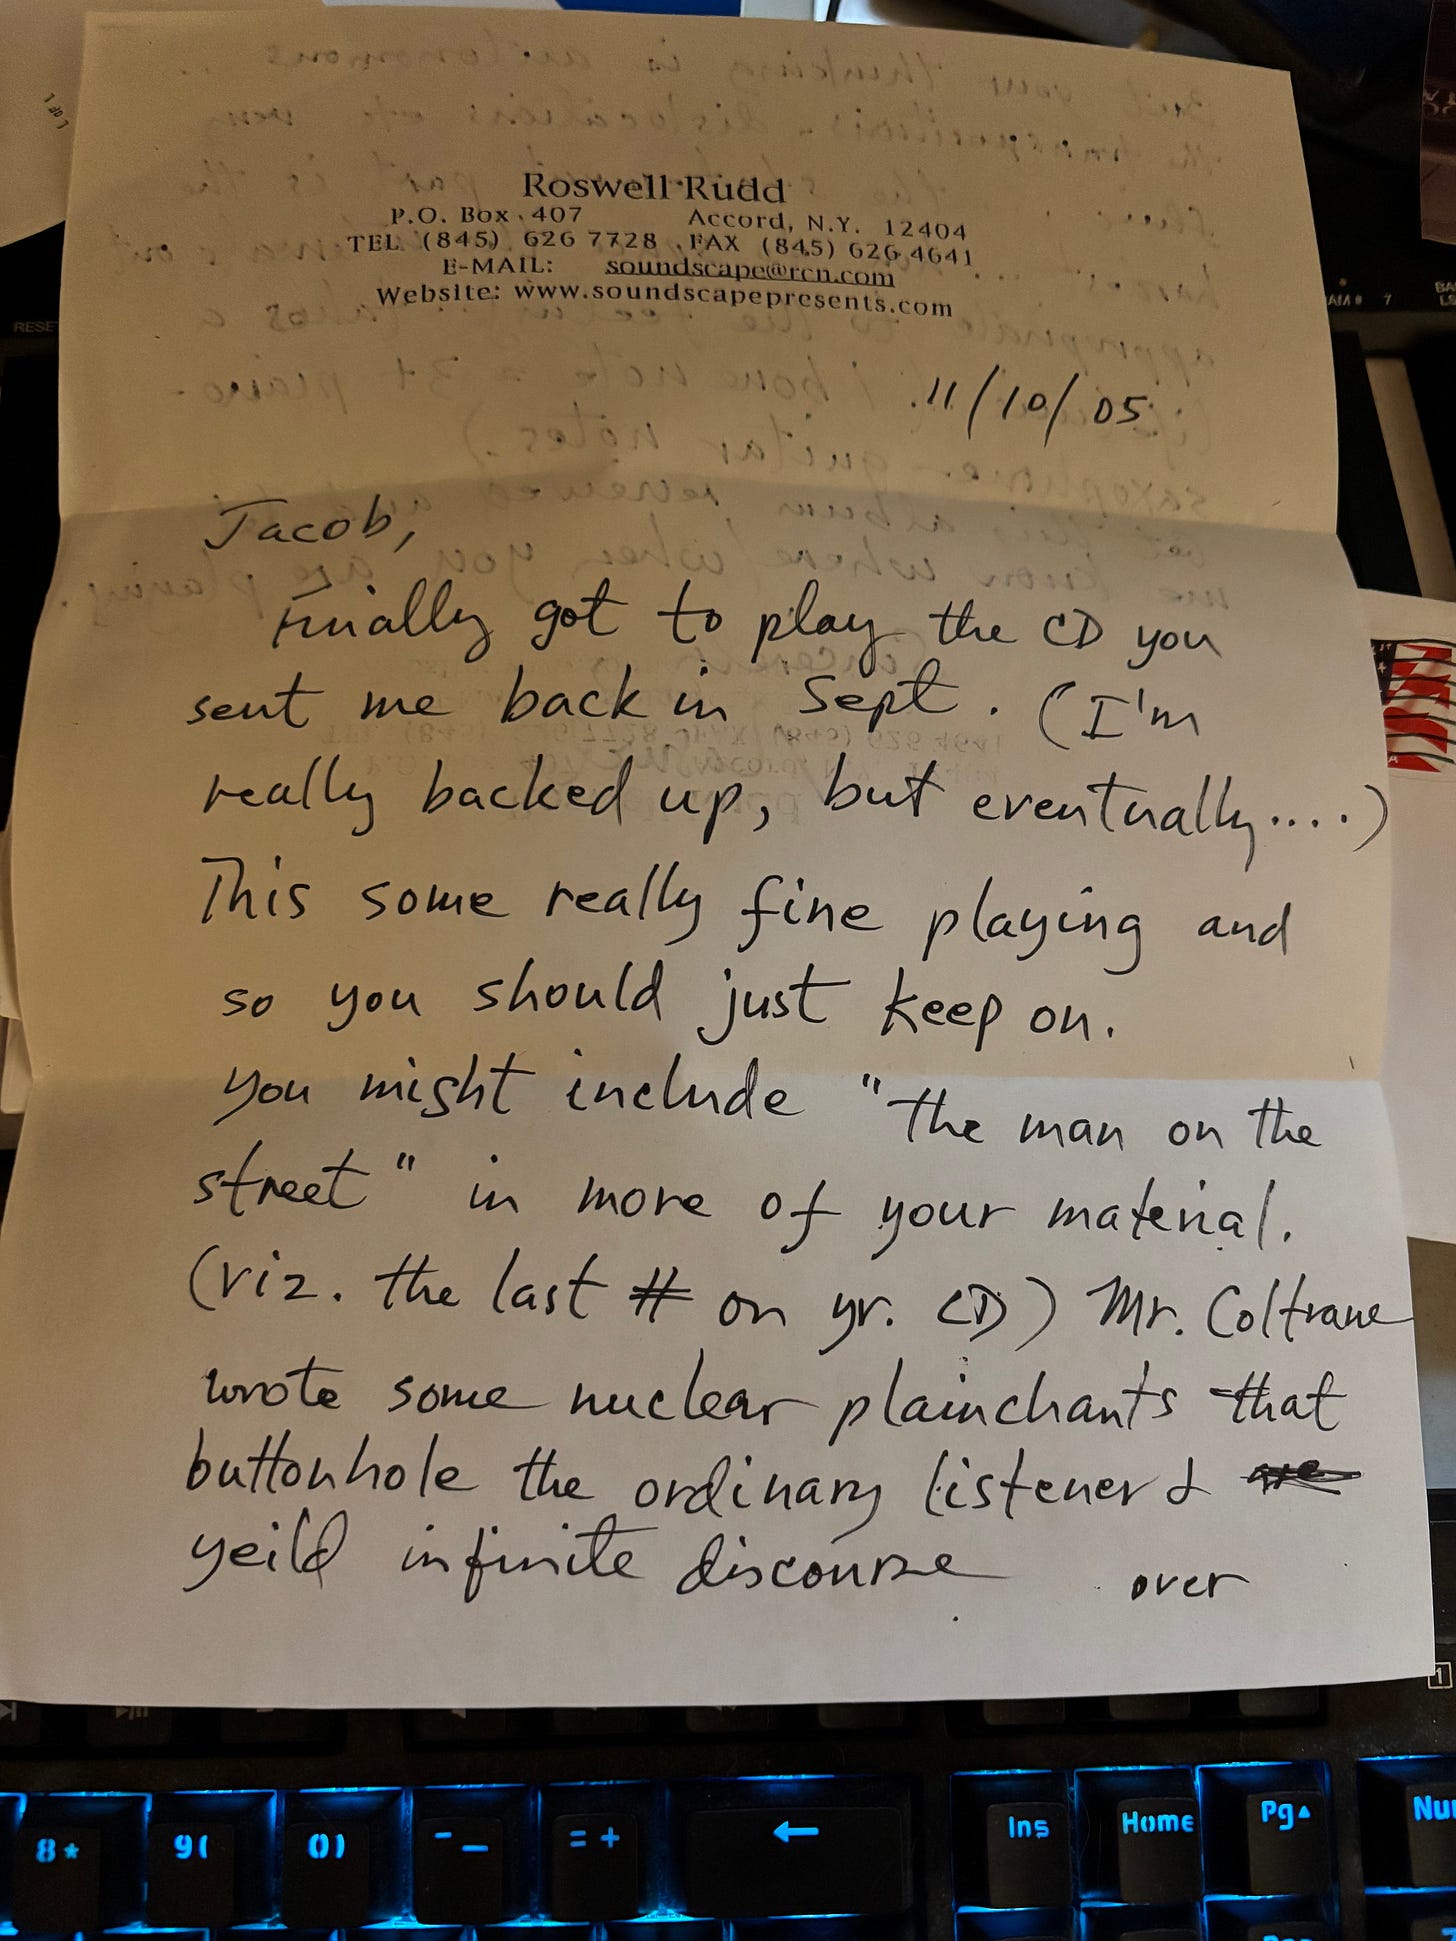 Roswell Rudd
P.O. Box 407 Accord, N.Y. 12404
TEL (845) 626 7728 FAX (845) 626 4641
E-MAIL: soundscape@rcn.com
Website: www.soundscapepresents.com
11/10/05
Jacob,
Finally got to play the CD you
sent me back in Sept. (I'm
really backed up, but eventually....)
This some really fine playing and
so you should just keep on.
You might include "the man on the
street" in more of your material.
(viz. the last # on yr. CD) Mr. Coltrane
wrote some nuclear plainchants that
buttonhole the ordinary listener &
yeild infinite discourse over
1 of 1
RESET
8* 9( 0) - _ = + ← Ins Home Pg▲ Nu